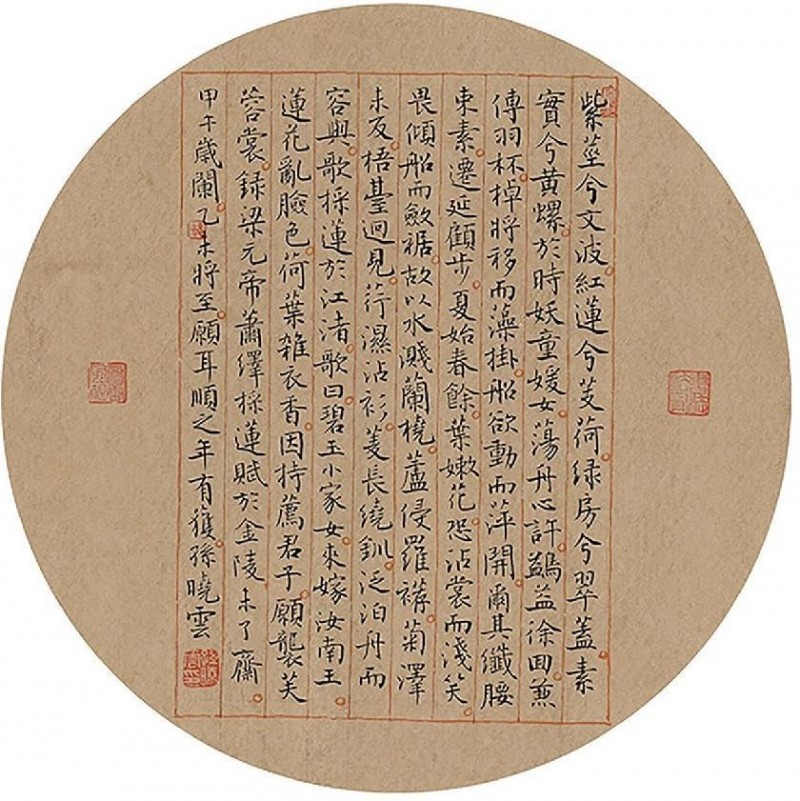 紫莖兮文波紅蓮兮芰荷绿房兮翠蓋素
實兮黄螺於時妖童媛女蕩舟心許鷁益徐回兼
傳羽杯棹將移而藻掛船欲動而萍開爾其纖腰
束素遷延顧步夏始春餘葉嫩花恐沾裳而淺笑
畏傾船而斂裾故以水濺蘭橈蘆侵羅䙓菊澤
未反梧臺迥見荇濕沾衫菱長繞釧泛泊舟而
容與歌採蓮於江渚歌曰碧玉小家女來嫁汝南王
蓮花亂臉色荷葉雑衣香因持薦君子願襲芙
蓉裳録梁元帝蕭繹採蓮賦於金陵未了齋
甲午歲闌乙未將至願耳順之年有獲孫曉雲